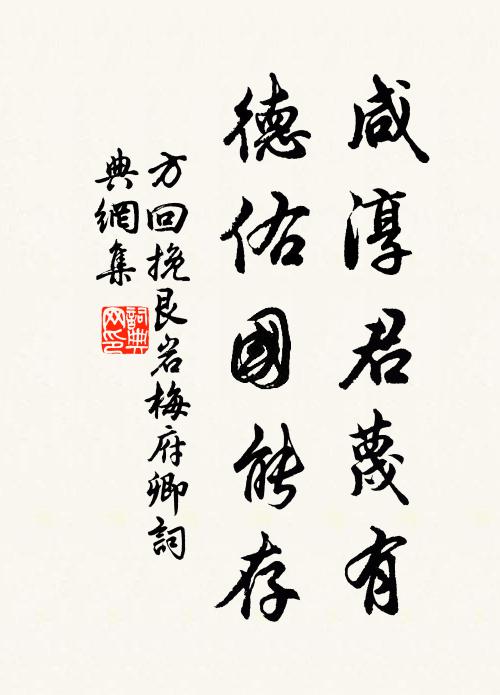 咸淳君蔑有
德佑國能存
方回挽艮岩梅府卿詞
典網集
詞典网印